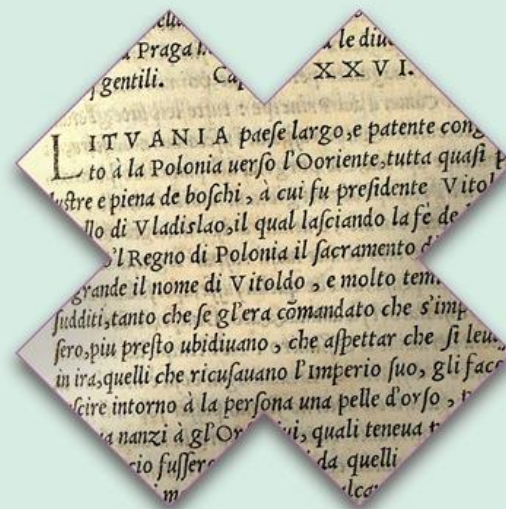 Praga le diu
gentili. Ca XXVI.
LITVANIA paeſe largo, e patente cong
to à la Polonia uerſo l'Ooriente, tutta quaſi p
luſtre e piena de boſchi, à cui fu preſidente Vitol
llo di Vladislao, il qual laſciando la fè de
'l Regno di Polonia il ſacramento d
grande il nome di Vitoldo, e molto tem
ſudditi, tanto che ſe gl'era cõmandato che s'imp
ſero, piu preſto ubidiuano, che aſpettar che ſi leu
in ira, quelli che ricuſauano l'Imperio ſuo, gli fac
ſcire intorno à la perſona una pelle d'orſo,
nanzi à gl'Or ui, quali teneua
cio fuſſer da quelli